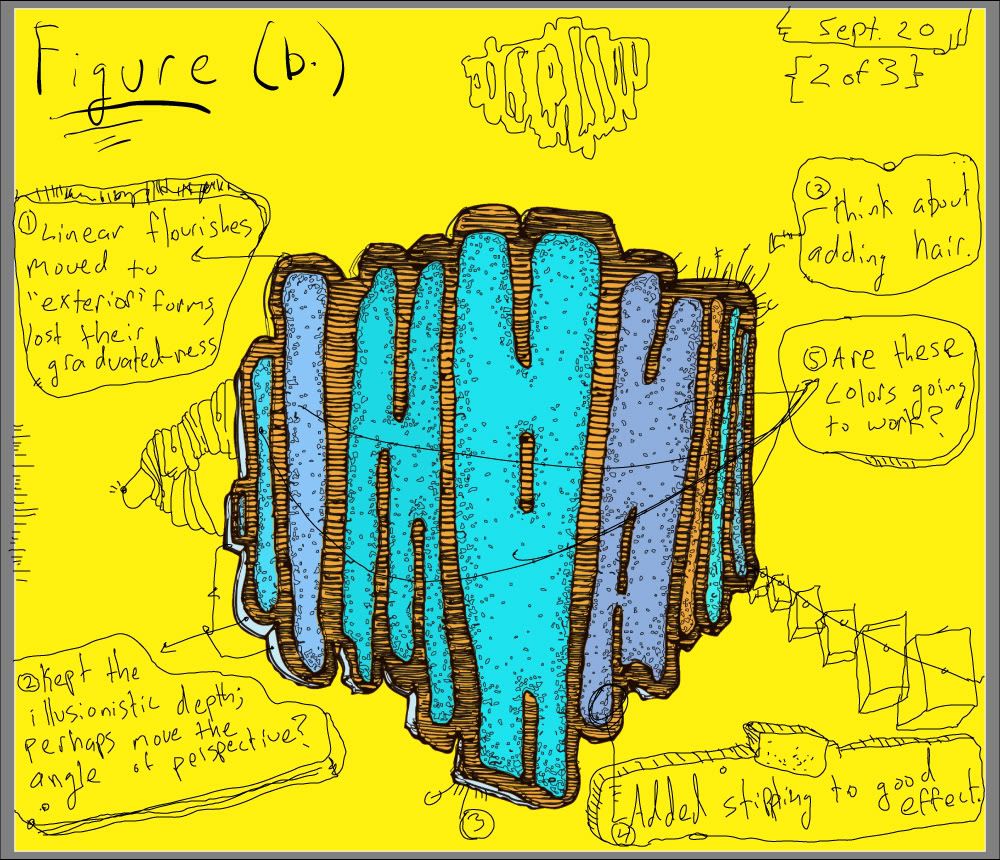 Figure (b.)
Sept. 20
{2 of 3}
① Linear flourishes
moved to
"exterior" forms,
lost their
graduated-ness
③ Think about
adding hair.
⑤ Are these
colors going
to work?
② Kept the
illusionistic depth;
perhaps move the
angle of perspective?
③
④ Added stippling to good
effect.